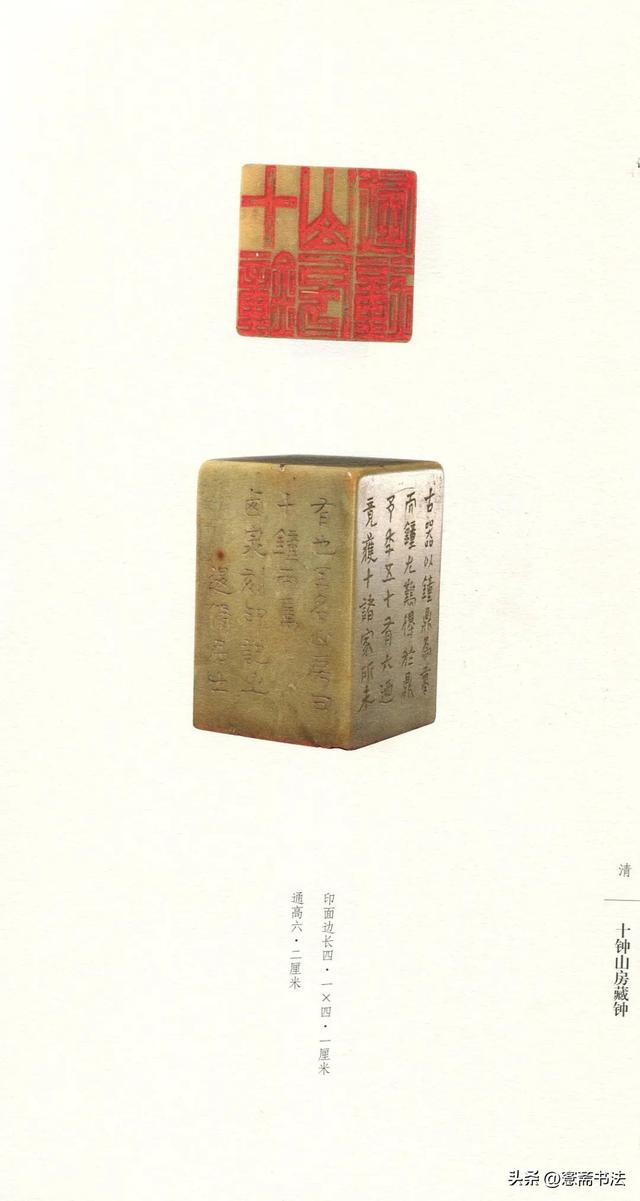 十鐘
山房
藏鐘
古器以鐘鼎為重
而鐘尤難得於鼎
予年五十有六迺
竟獲十諸家所未
有也名山房曰
十鐘而屬
泉刻印記之
退修居士
印面边长四·一×四·一厘米
通高六·二厘米
清
十钟山房藏钟
头条@窓斋书法